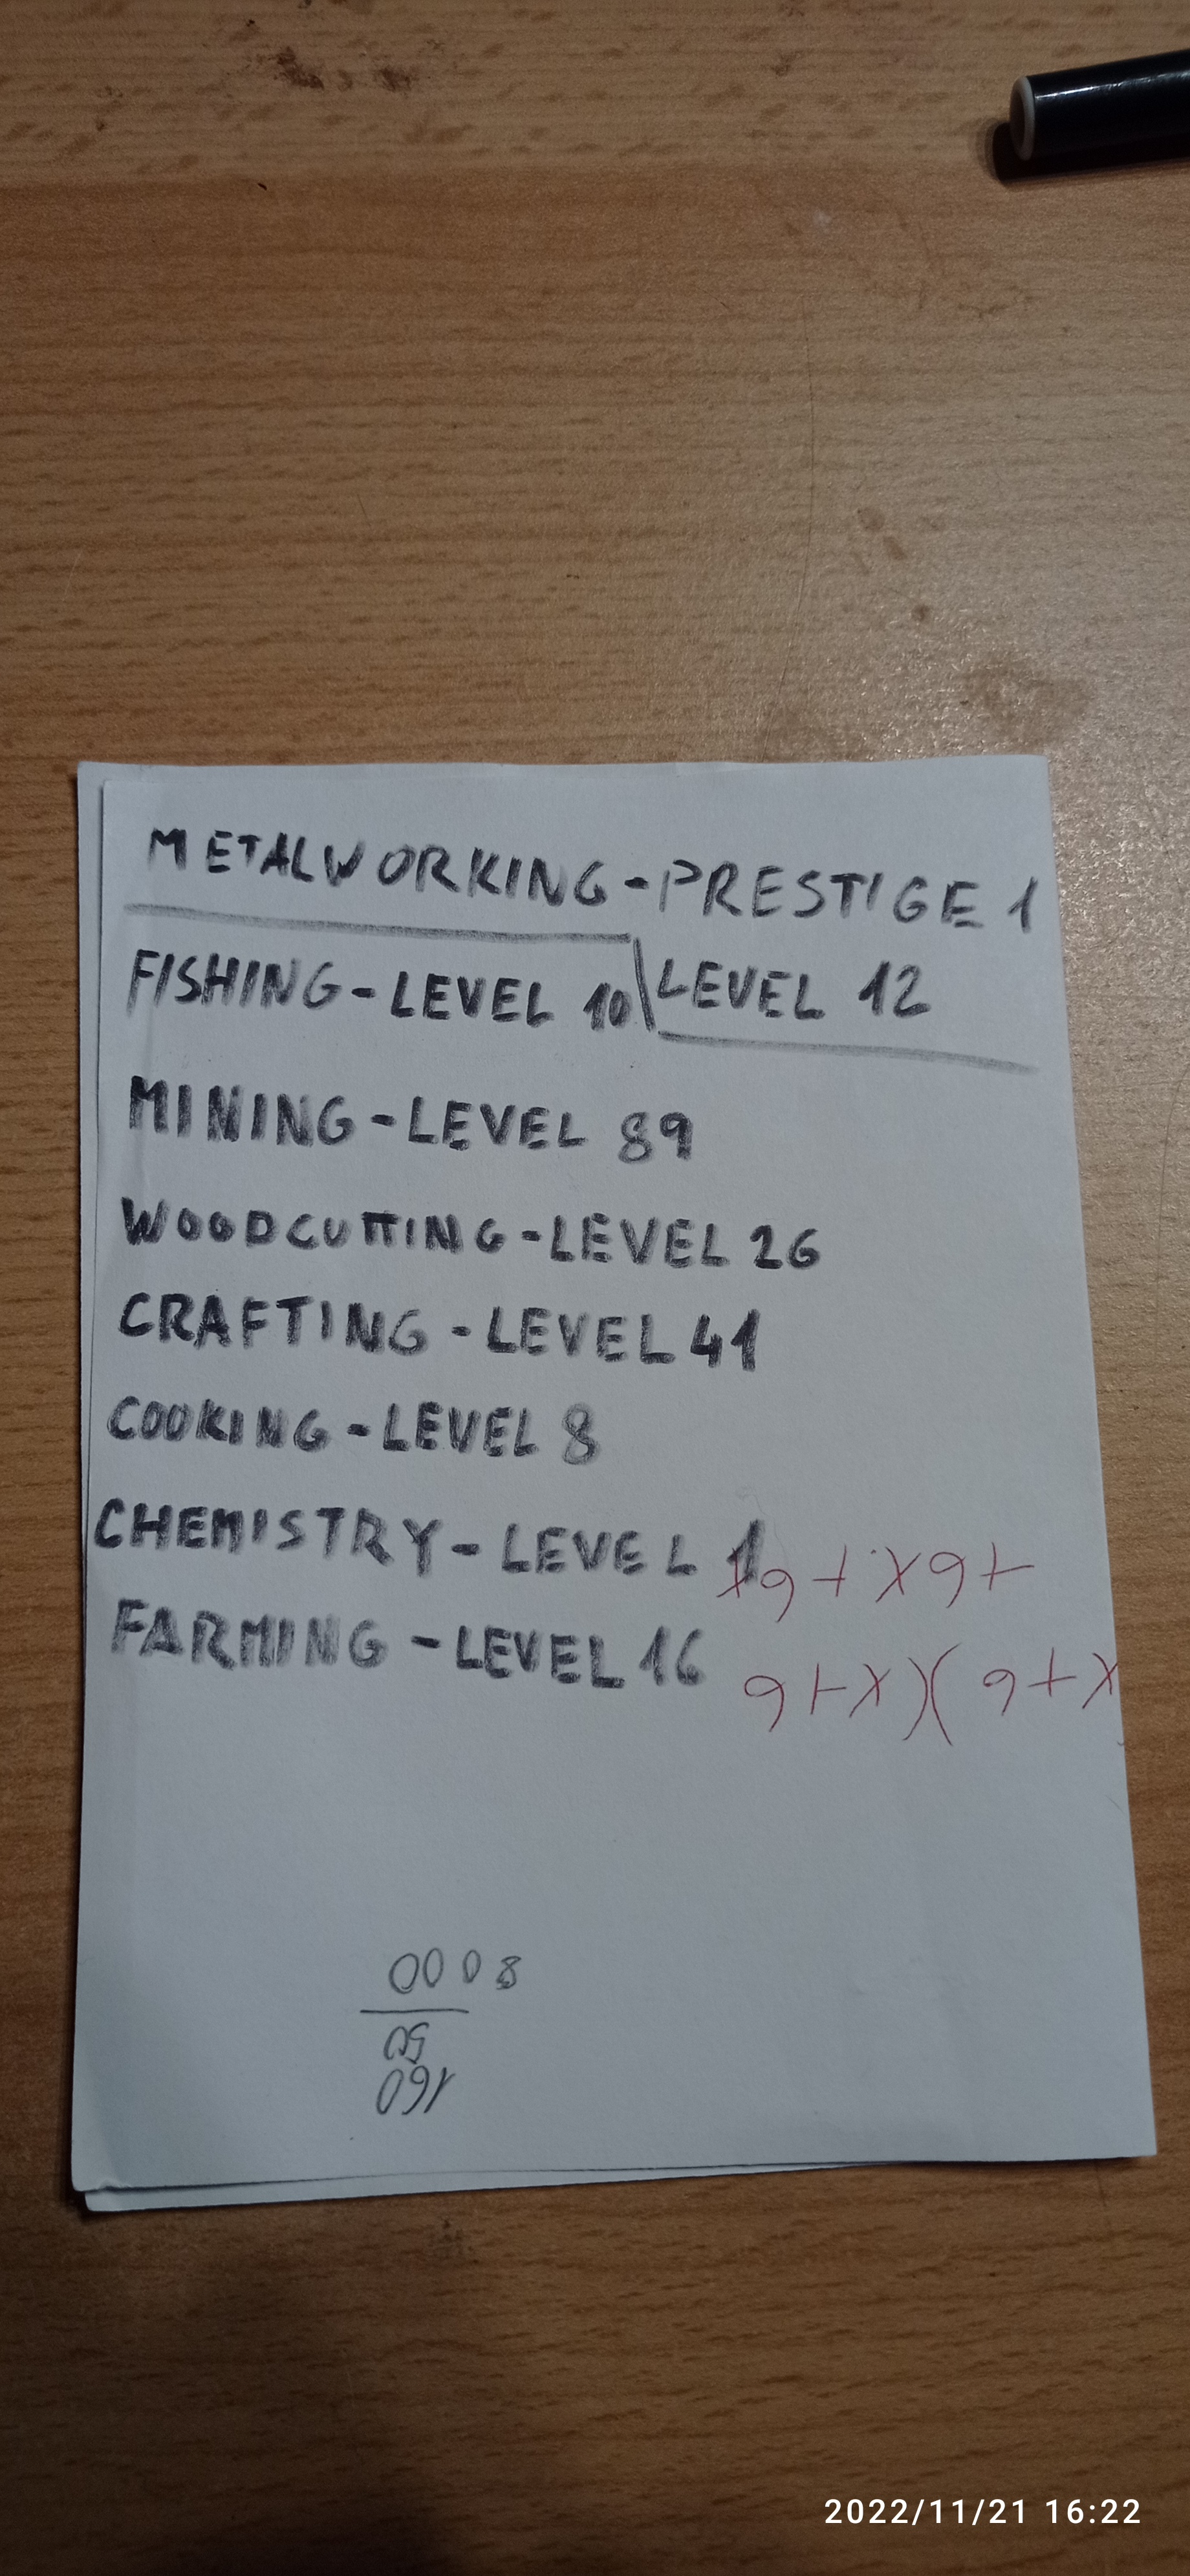 METALWORKING-PRESTIGE 1
LEVEL 12
FISHING-LEVEL 10
MINING-LEVEL 89
WOODCUTTING-LEVEL 26
CRAFTING-LEVEL 41
COOKING-LEVEL 8
CHEMISTRY-LEVEL 1
FARMING-LEVEL 16
x+6)(x+6
+6x+6x
160
50
8000
2022/11/21 16:22